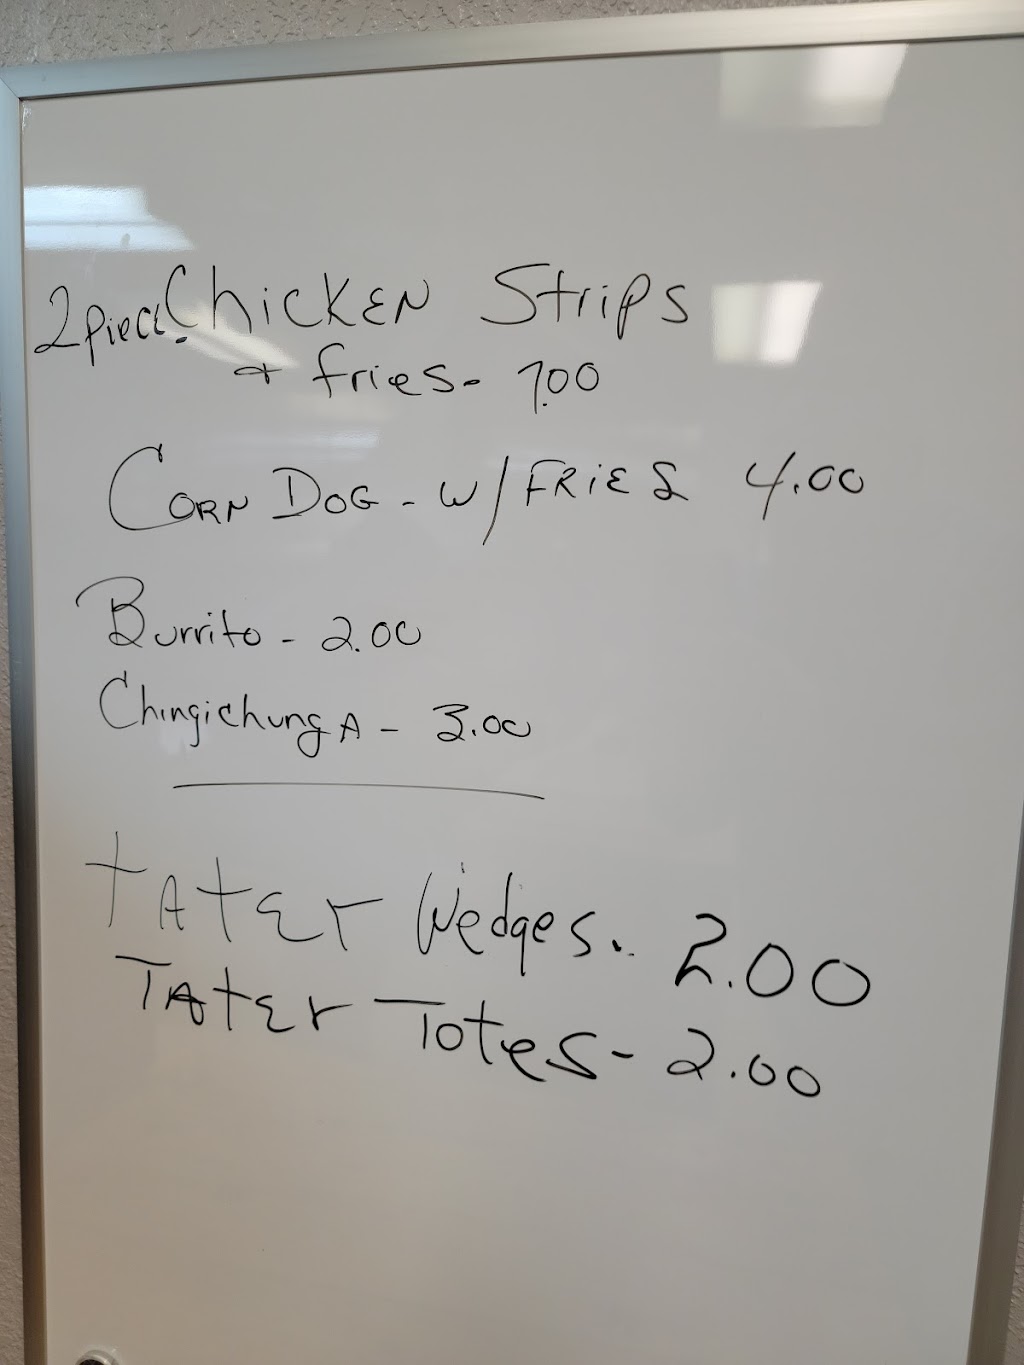 2 piece Chicken Strips
+ fries - 7.00
Corn Dog - w/ Fries 4.00
Burrito - 2.00
ChingichungA - 3.00
tater Wedges - 2.00
Tater Totes - 2.00